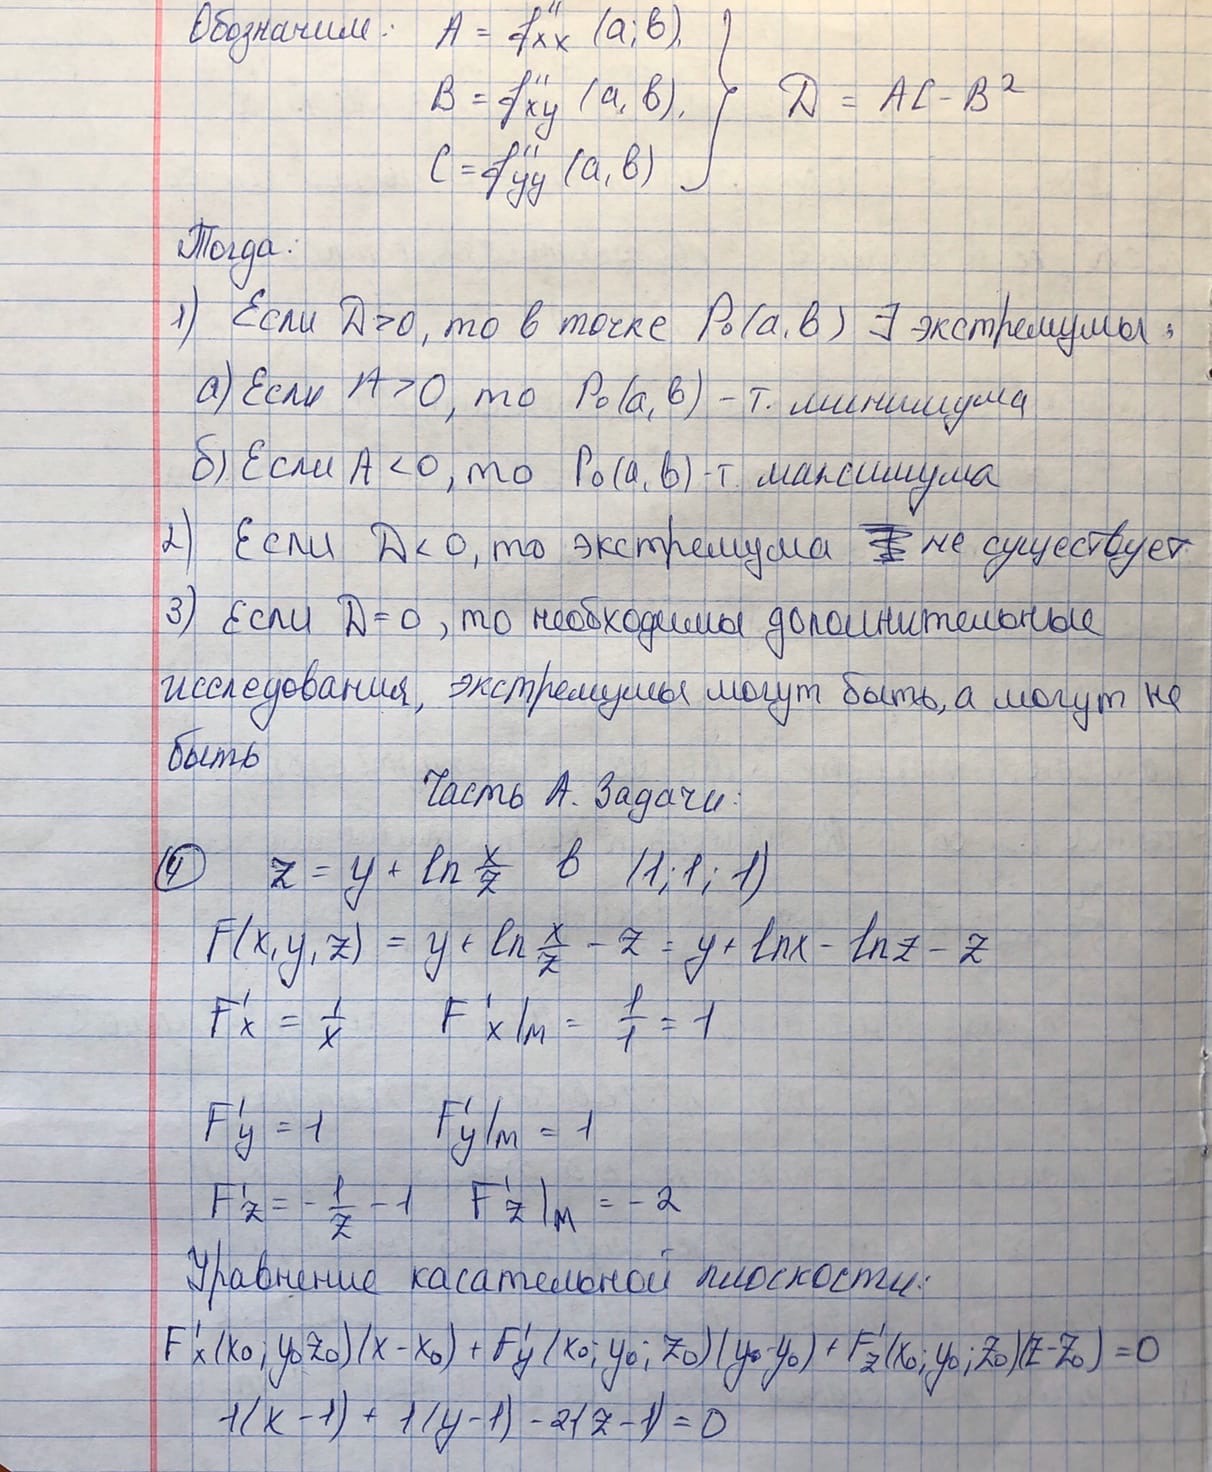 Обозначим: A = f''xx (a; в),
B = f''xy (a, в),
C = f''yy (a, в)
D = AC - B²
Тогда:
1) Если D>0, то в точке P₀(a, в) ∃ экстремумы:
а) Если A>0, то P₀(a, в) - т. минимума
б) Если A<0, то P₀(a, в) - т. максимума
2) Если D<0, то экстремума не существует
3) Если D=0, то необходимы дополнительные
исследования, экстремумы могут быть, а могут не
быть
Часть А. Задачи:
④ z = y + ln x/z в (1; 1; 1)
F(x, y, z) = y + ln x/z - z = y + lnx - lnz - z
F'x = 1/x F'x|м = 1/1 = 1
F'y = 1 F'y|м = 1
F'z = -1/z - 1 F'z|м = -2
Уравнение касательной плоскости:
F'x(x₀; y₀ z₀)(x-x₀) + F'y(x₀; y₀; z₀)(y-y₀) + F'z(x₀; y₀; z₀)(z-z₀) = 0
1(x-1) + 1(y-1) - 2(z-1) = 0